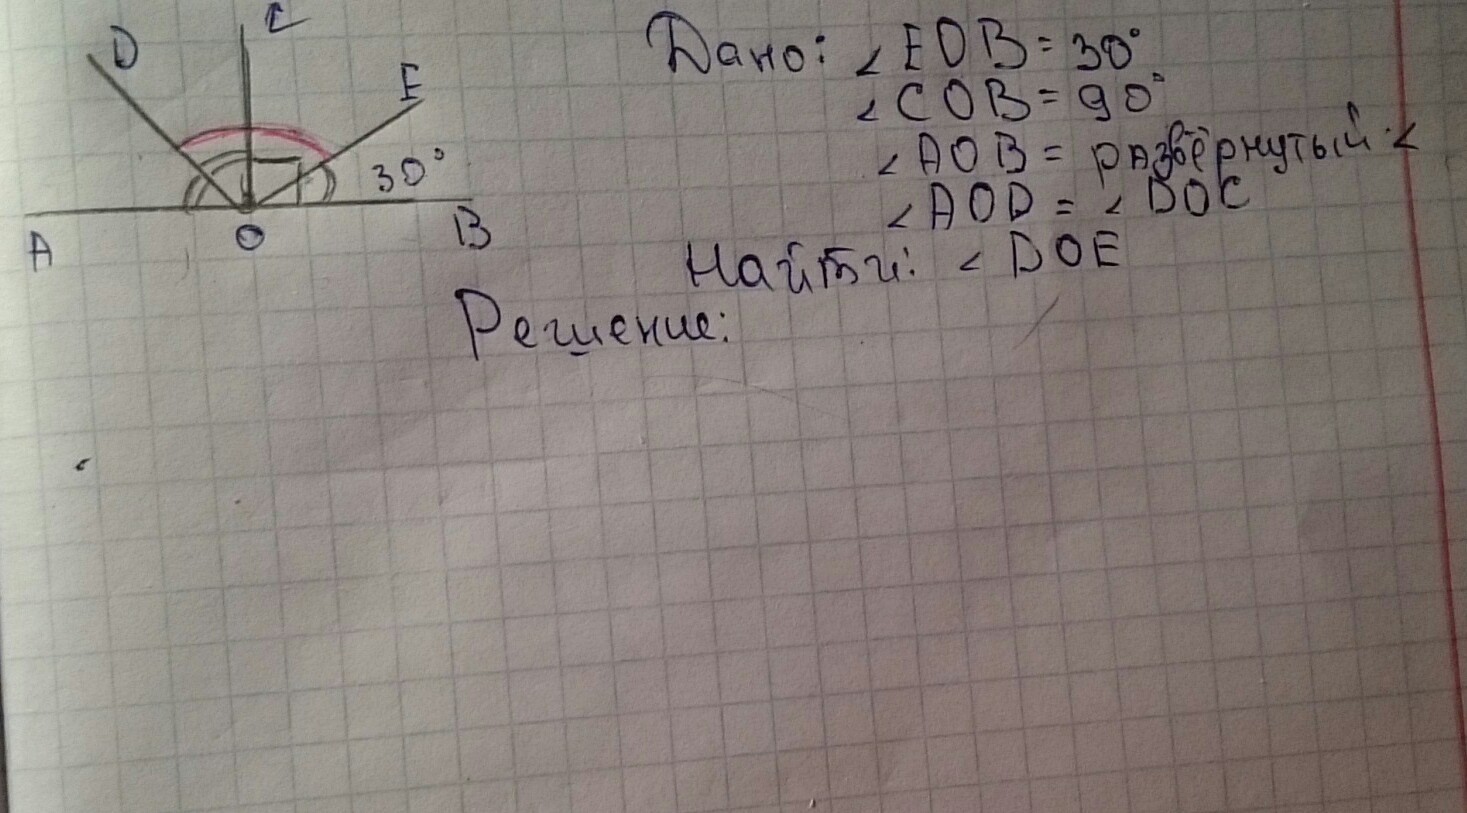 D
C
E
30°
A
O
B
Дано: ∠EOB = 30°
∠COB = 90°
∠AOB = развёрнутый ∠
∠AOD = ∠DOC
Найти: ∠DOE
Решение: